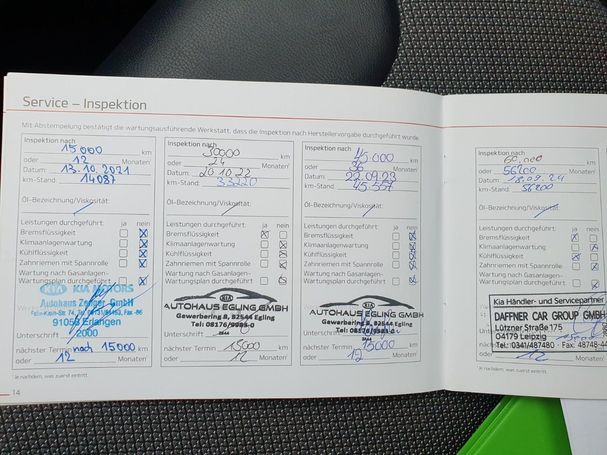 Service – Inspektion
Mit Abstempelung bestätigt die wartungsausführende Werkstatt, dass die Inspektion nach Herstellervorgabe durchgeführt wurde.
Inspektion nach
15000 km
oder 12 Monaten
Datum 13.10.2021
km-Stand: 14087
Öl-Bezeichnung/Viskosität:
Leistungen durchgeführt: ja nein
Bremsflüssigkeit
Klimaanlagenwartung
Kühlflüssigkeit
Zahnriemen mit Spannrolle
Wartung nach Gasanlagen-
Wartungsplan durchgeführt
KIA MOTORS
Autohaus GmbH
91056 Erlangen
Unterschrift
nächster Termin nach 15000 km
oder 12 Monaten
Inspektion nach
30000 km
oder 24 Monaten
Datum 20.10.22
km-Stand: 33220
Öl-Bezeichnung/Viskosität:
Leistungen durchgeführt: ja nein
Bremsflüssigkeit
Klimaanlagenwartung
Kühlflüssigkeit
Zahnriemen mit Spannrolle
Wartung nach Gasanlagen-
Wartungsplan durchgeführt
KIA
AUTOHAUS EGLING GMBH
Gewerbering 8, 82544 Egling
Unterschrift
nächster Termin 15000 km
oder 12 Monaten
Inspektion nach
45000 km
oder 36 Monaten
Datum 22.09.23
km-Stand: 45.557
Öl-Bezeichnung/Viskosität:
Leistungen durchgeführt: ja nein
Bremsflüssigkeit
Klimaanlagenwartung
Kühlflüssigkeit
Zahnriemen mit Spannrolle
Wartung nach Gasanlagen-
Wartungsplan durchgeführt
KIA
AUTOHAUS EGLING GMBH
Gewerbering 8, 82544 Egling
nächster Termin 15000 km
oder 12 Monaten
Je nachdem, was zuerst eintritt.
14
Inspektion nach
60.000 km
oder 56200 Monaten
Datum 18.09.24
km-Stand: 56200
Öl-Bezeichnung/Viskosität:
Leistungen durchgeführt: ja nein
Bremsflüssigkeit
Klimaanlagenwartung
Kühlflüssigkeit
Zahnriemen mit Spannrolle
Wartung nach Gasanlagen-
Wartungsplan durchgeführt
Kia Händler- und Servicepartner
DAFFNER CAR GROUP GMBH
Lützner Straße 175
04179 Leipzig
Tel.: 0341/487480 · Fax: 48748-44
oder 12 Monaten
Je nachdem, was zuerst eintritt.